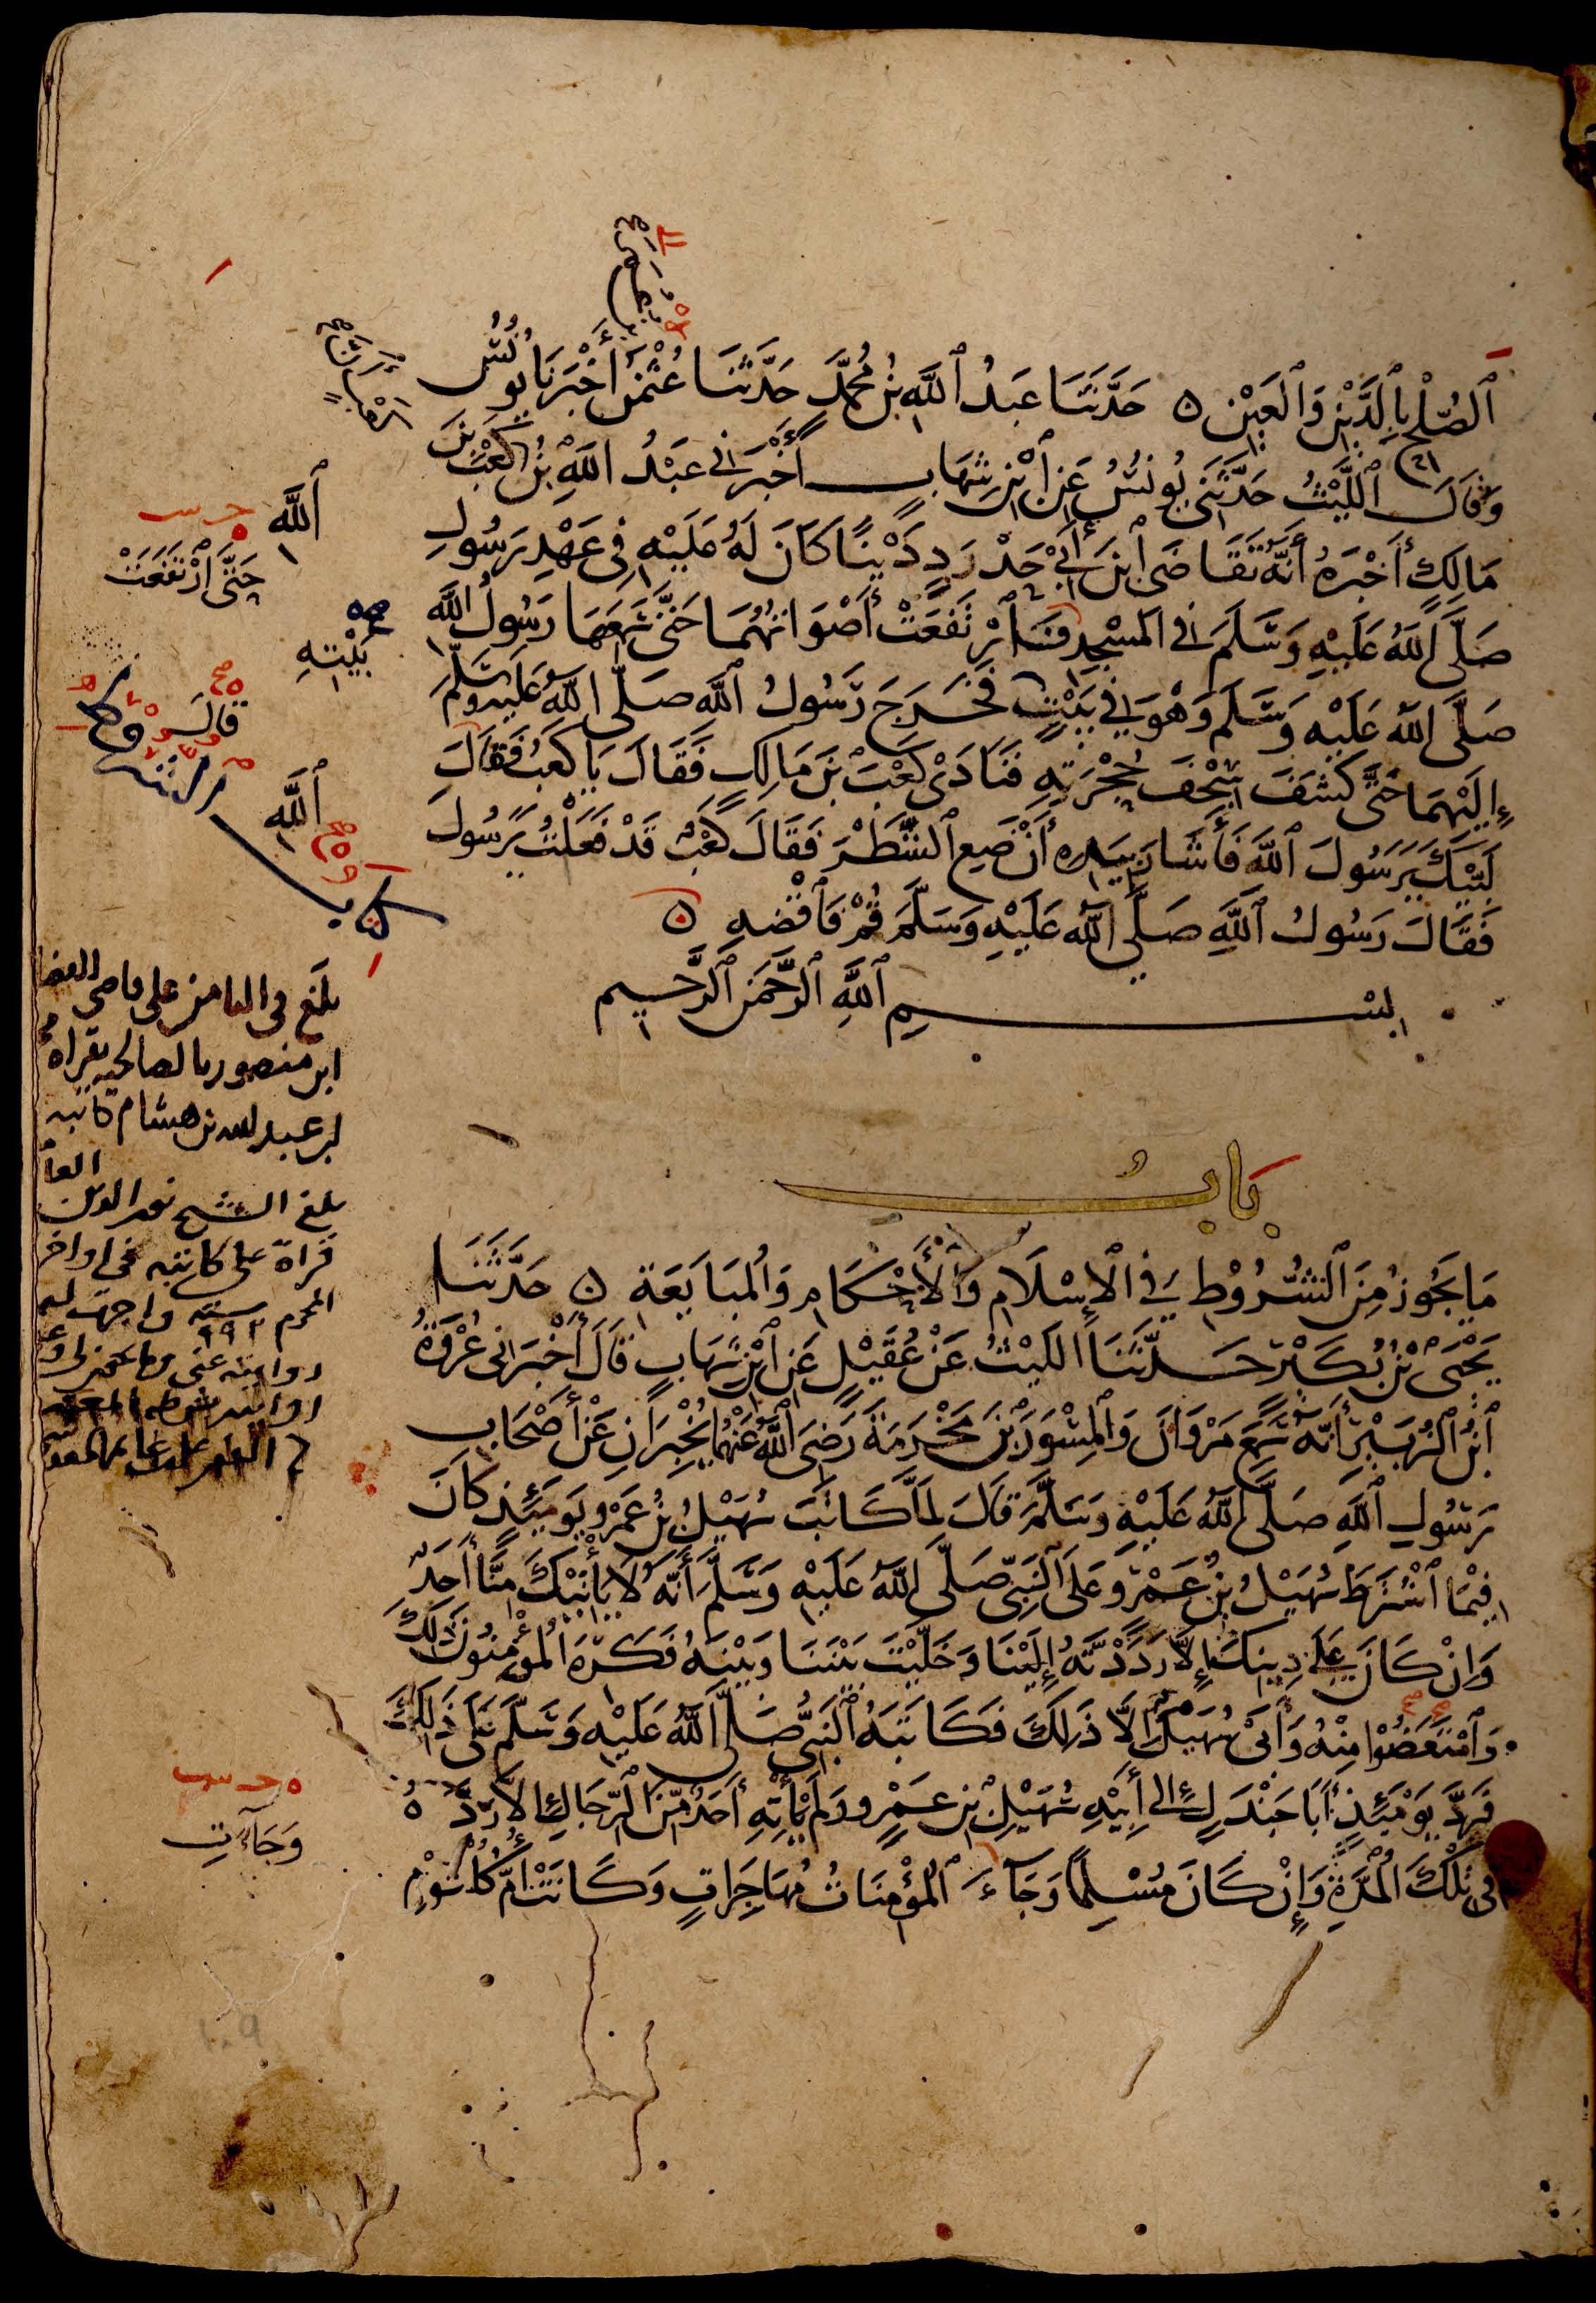 ٱلصُّلْحِ بِالدَّيْنِ وَٱلْعَيْنِ ۞ حَدَّثَنَا عَبْدُ ٱللَّهِ بْنُ مُحَمَّدٍ حَدَّثَنَا عُثْمٰنُ أَخْبَرَنَا يُونُسُ
وَقَالَ ٱللَّيْثُ حَدَّثَنِي يُونُسُ عَنِ ٱبْنِ شِهَابٍ أَخْبَرَنِي عَبْدُ اللَّهِ بْنُ كَعْبِ بْنِ
مَالِكٍ أَخْبَرَهُ أَنَّهُ تَقَاضَى ٱبْنَ أَبِي حَدْرَدٍ دَيْنًا كَانَ لَهُ عَلَيْهِ فِي عَهْدِ رَسُولِ
صَلَّى اللَّهُ عَلَيْهِ وَسَلَّمَ فِي المَسْجِدِ فَٱرْتَفَعَتْ أَصْوَاتُهُمَا حَتَّى سَمِعَهَا رَسُولُ اللَّهِ
صَلَّى اللَّهُ عَلَيْهِ وَسَلَّمَ وَهْوَ فِي بَيْتٍ فَخَرَجَ رَسُولُ ٱللَّهِ صَلَّى اللَّهُ عَلَيْهِ وَسَلَّمَ
إِلَيْهِمَا حَتَّى كَشَفَ سِجْفَ حُجْرَتِهِ فَنَادَى كَعْبَ بْنَ مَالِكٍ فَقَالَ يَا كَعْبُ فَقَالَ
لَبَّيْكَ يَرَسُولَ ٱللَّهِ فَأَشَارَ بِيَدِهِ أَنْ ضَعِ ٱلشَّطْرَ فَقَالَ كَعْبٌ قَدْ فَعَلْتُ يَرَسُولَ
فَقَالَ رَسُولُ ٱللَّهِ صَلَّى اللَّهُ عَلَيْهِ وَسَلَّمَ قُمْ فَٱقْضِهِ ۞
بِسْمِ ٱللَّهِ ٱلرَّحْمَنِ ٱلرَّحِيمِ
بَابُ
مَا يَجُوزُ مِنَ ٱلشُّرُوْطِ فِي الإِسْلَامِ وَالأَحْكَامِ وَالمُبَايَعَةِ ۞ حَدَّثَنَا
يَحْيَى بْنُ بُكَيْرٍ حَدَّثَنَا اللَّيْثُ عَنْ عُقَيْلٍ عَنِ ٱبْنِ شِهَابٍ قَالَ أَخْبَرَنِي عُرْوَةُ
ٱبْنُ الزُّبَيْرِ أَنَّهُ سَمِعَ مَرْوَانَ وَالْمِسْوَرَ بْنَ مَخْرَمَةَ رَضِيَ ٱللَّهُ عَنْهُمَا يُخْبِرَانِ عَنْ أَصْحَابِ
رَسُولِ ٱللَّهِ صَلَّى اللَّهُ عَلَيْهِ وَسَلَّمَ قَالَ لَمَّا كَاتَبَ سُهَيْلُ بْنُ عَمْرٍو يَوْمَئِذٍ كَانَ
فِيْمَا ٱشْتَرَطَ سُهَيْلُ بْنُ عَمْرٍو عَلَى النَّبِيِّ صَلَّى اللَّهُ عَلَيْهِ وَسَلَّمَ أَنَّهُ لَا يَأْتِيْكَ مِنَّا أَحَدٌ
وَإِنْ كَانَ عَلَى دِينِكَ إِلَّا رَدَدْتَهُ إِلَيْنَا وَخَلَّيْتَ بَيْنَنَا وَبَيْنَهُ فَكَرِهَ المُؤْمِنُونَ ذَلِكَ
وَٱمْتَعَضُوْا مِنْهُ وَأَبَى سُهَيْلٌ إِلَّا ذَلِكَ فَكَاتَبَهُ النَّبِيُّ صَلَّى اللَّهُ عَلَيْهِ وَسَلَّمَ عَلَى ذَلِكَ
فَرَدَّ يَوْمَئِذٍ أَبَا جَنْدَلٍ إِلَى أَبِيْهِ سُهَيْلِ بْنِ عَمْرٍو وَلَمْ يَأْتِهِ أَحَدٌ مِنَ الرِّجَالِ إِلَّا رَدَّهُ
فِي تِلْكَ المُدَّةِ وَإِنْ كَانَ مُسْلِمًا وَجَاءَ ٱلمُؤْمِنَاتُ مُهَاجِرَاتٍ وَكَانَتْ أُمُّ كُلْثُوْمٍ
ٱللَّهِ
حَتَّى ٱرْتَفَعَتْ
بَيْتِهِ
قَالَ
ٱللَّهِ
بلغ في الثامن على قاضي القضا
ابن منصور بالصالحية بقراءة
ابن عبد الله بن هشام كاتبه
بلغ الشيخ نور الدين
قراءة على كاتبه في اواخر
المحرم سنة
وَجَاءَتِ